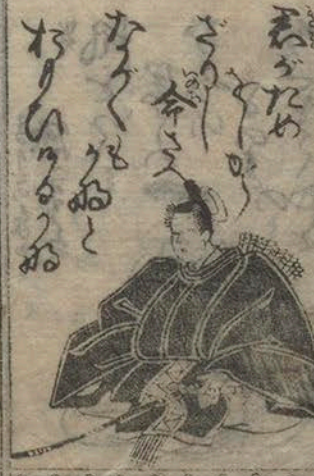 君がため
をしから
ざりし
命さへ
ながく
もがなと
おもひけるかな